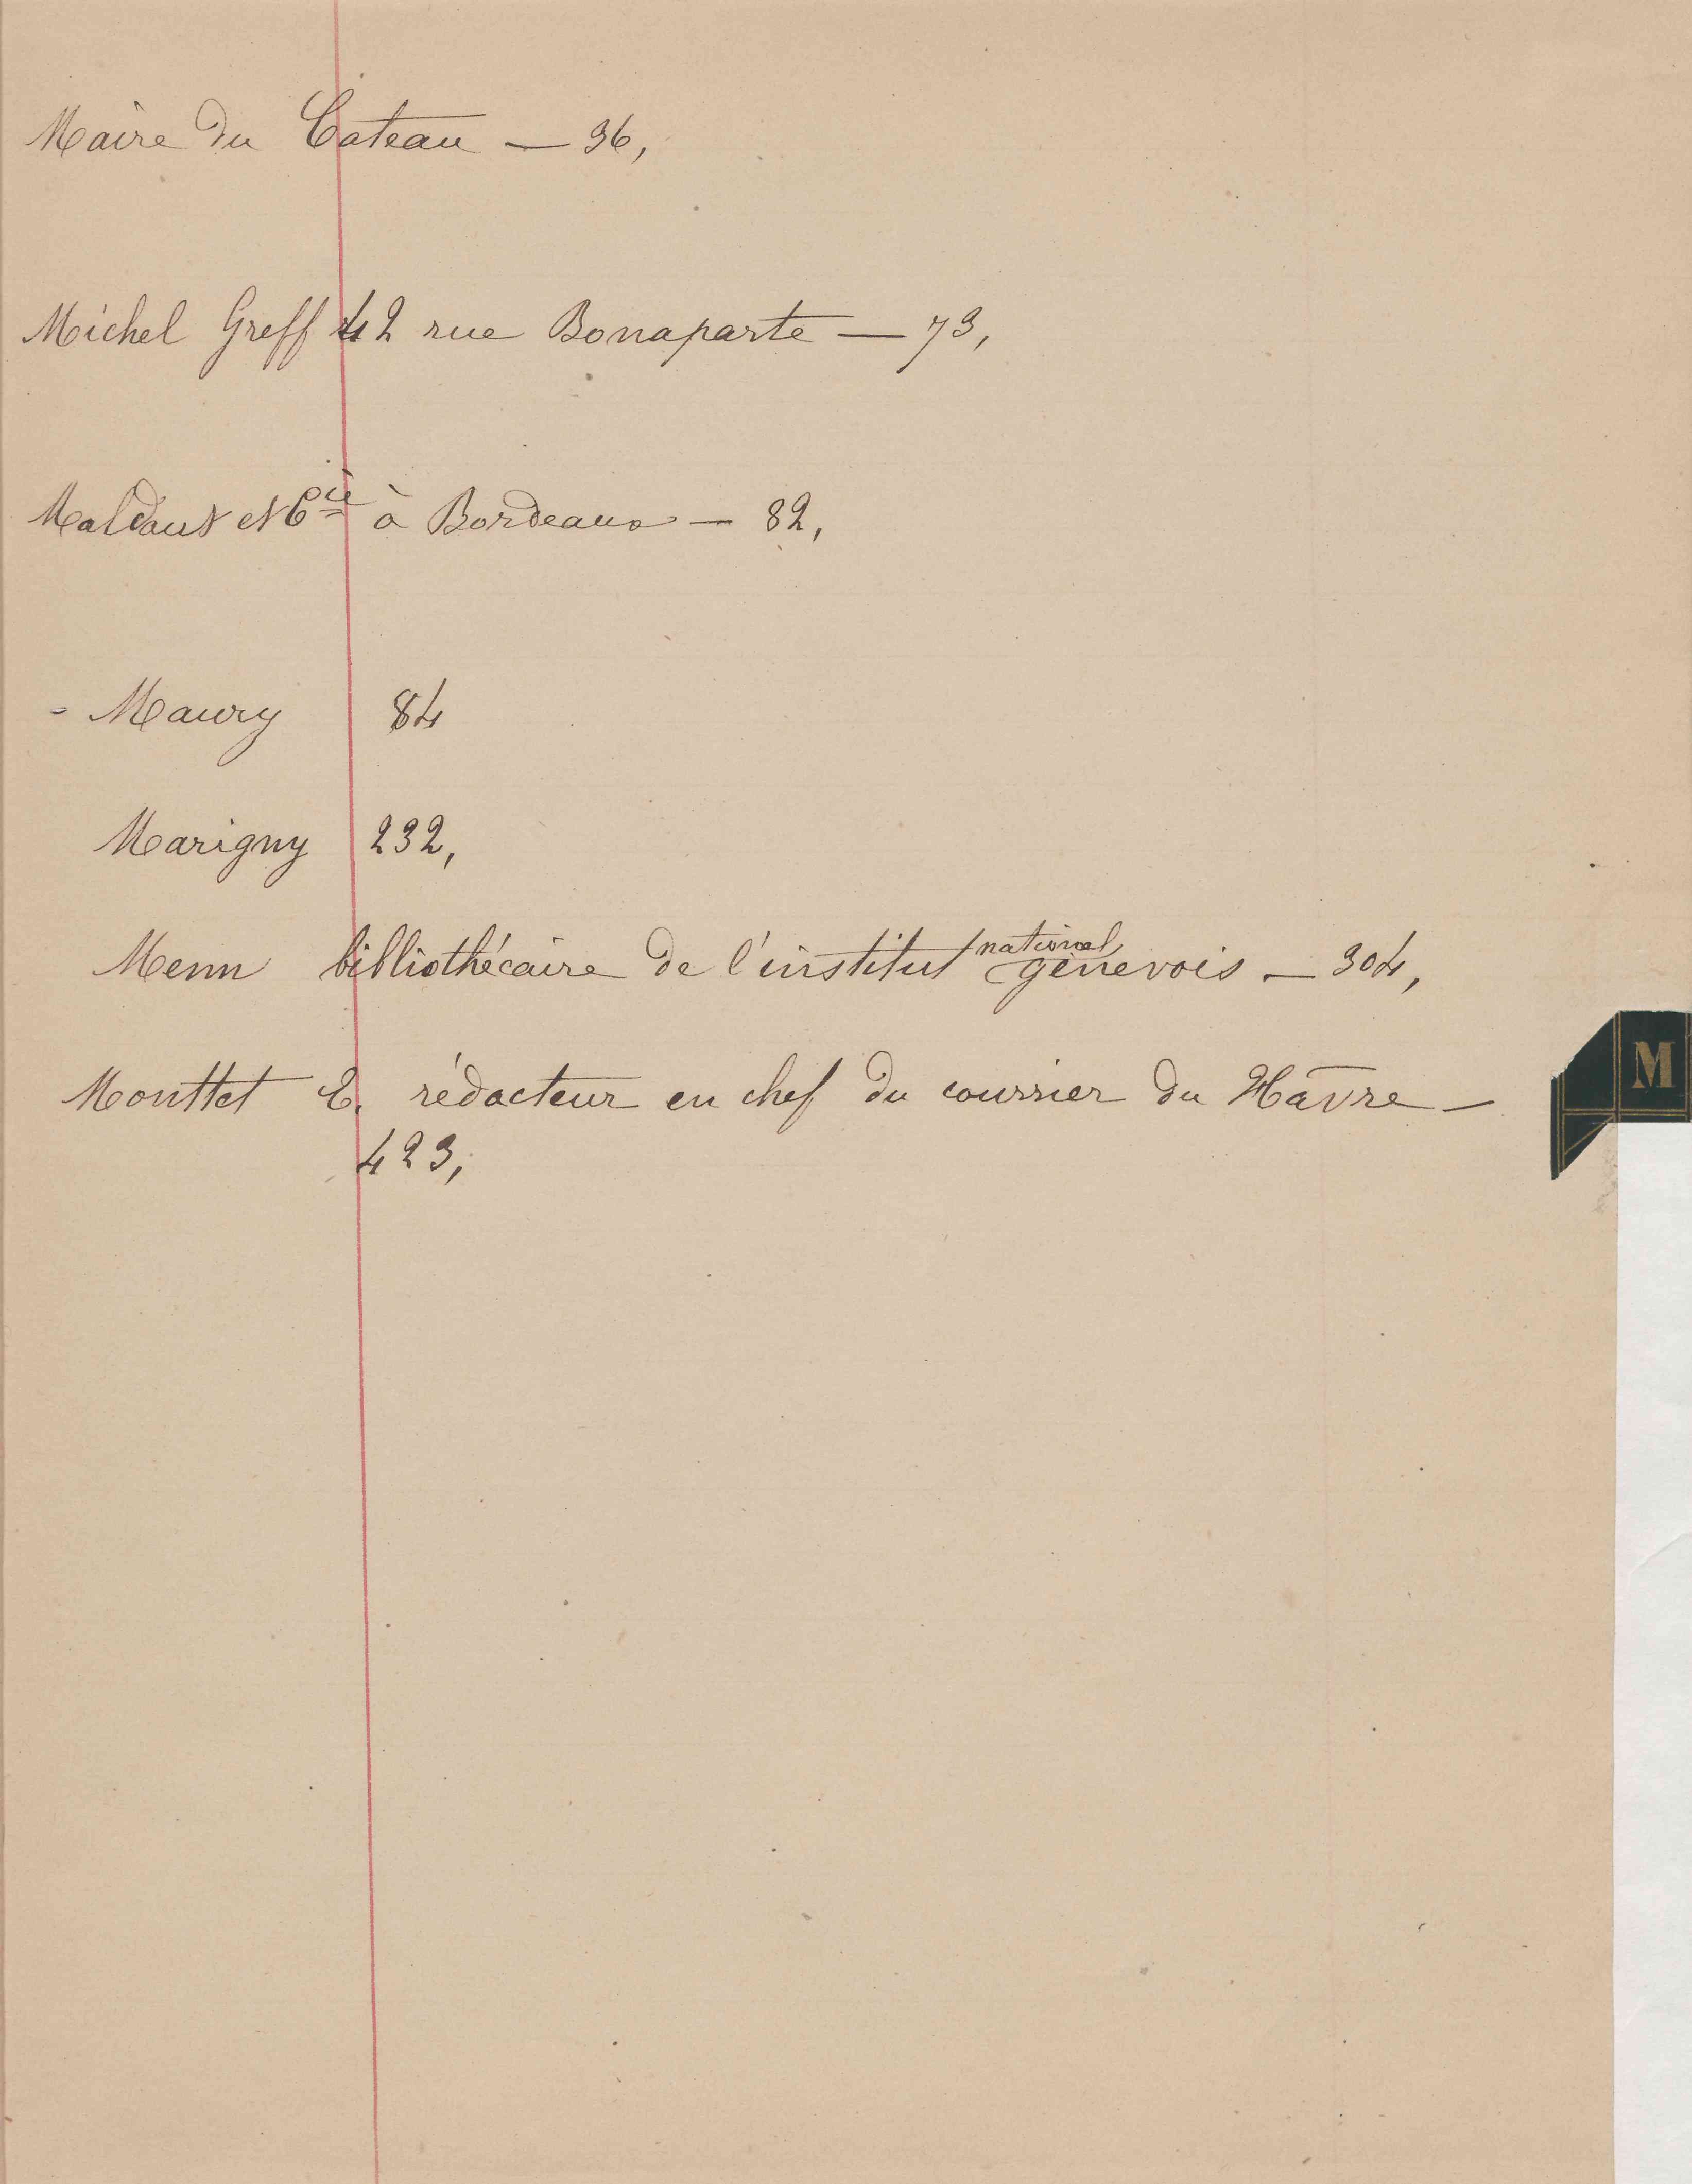 Maire du Cateau — 36,
Michel Greff 42 rue Bonaparte — 73,
Maldant et Cie à Bordeaux — 82,
- Maury 84
Marigny 232,
Menn bibliothécaire de l'institut national genevois — 304,
Mouttet E. rédacteur en chef du courrier du Havre —
423,
M